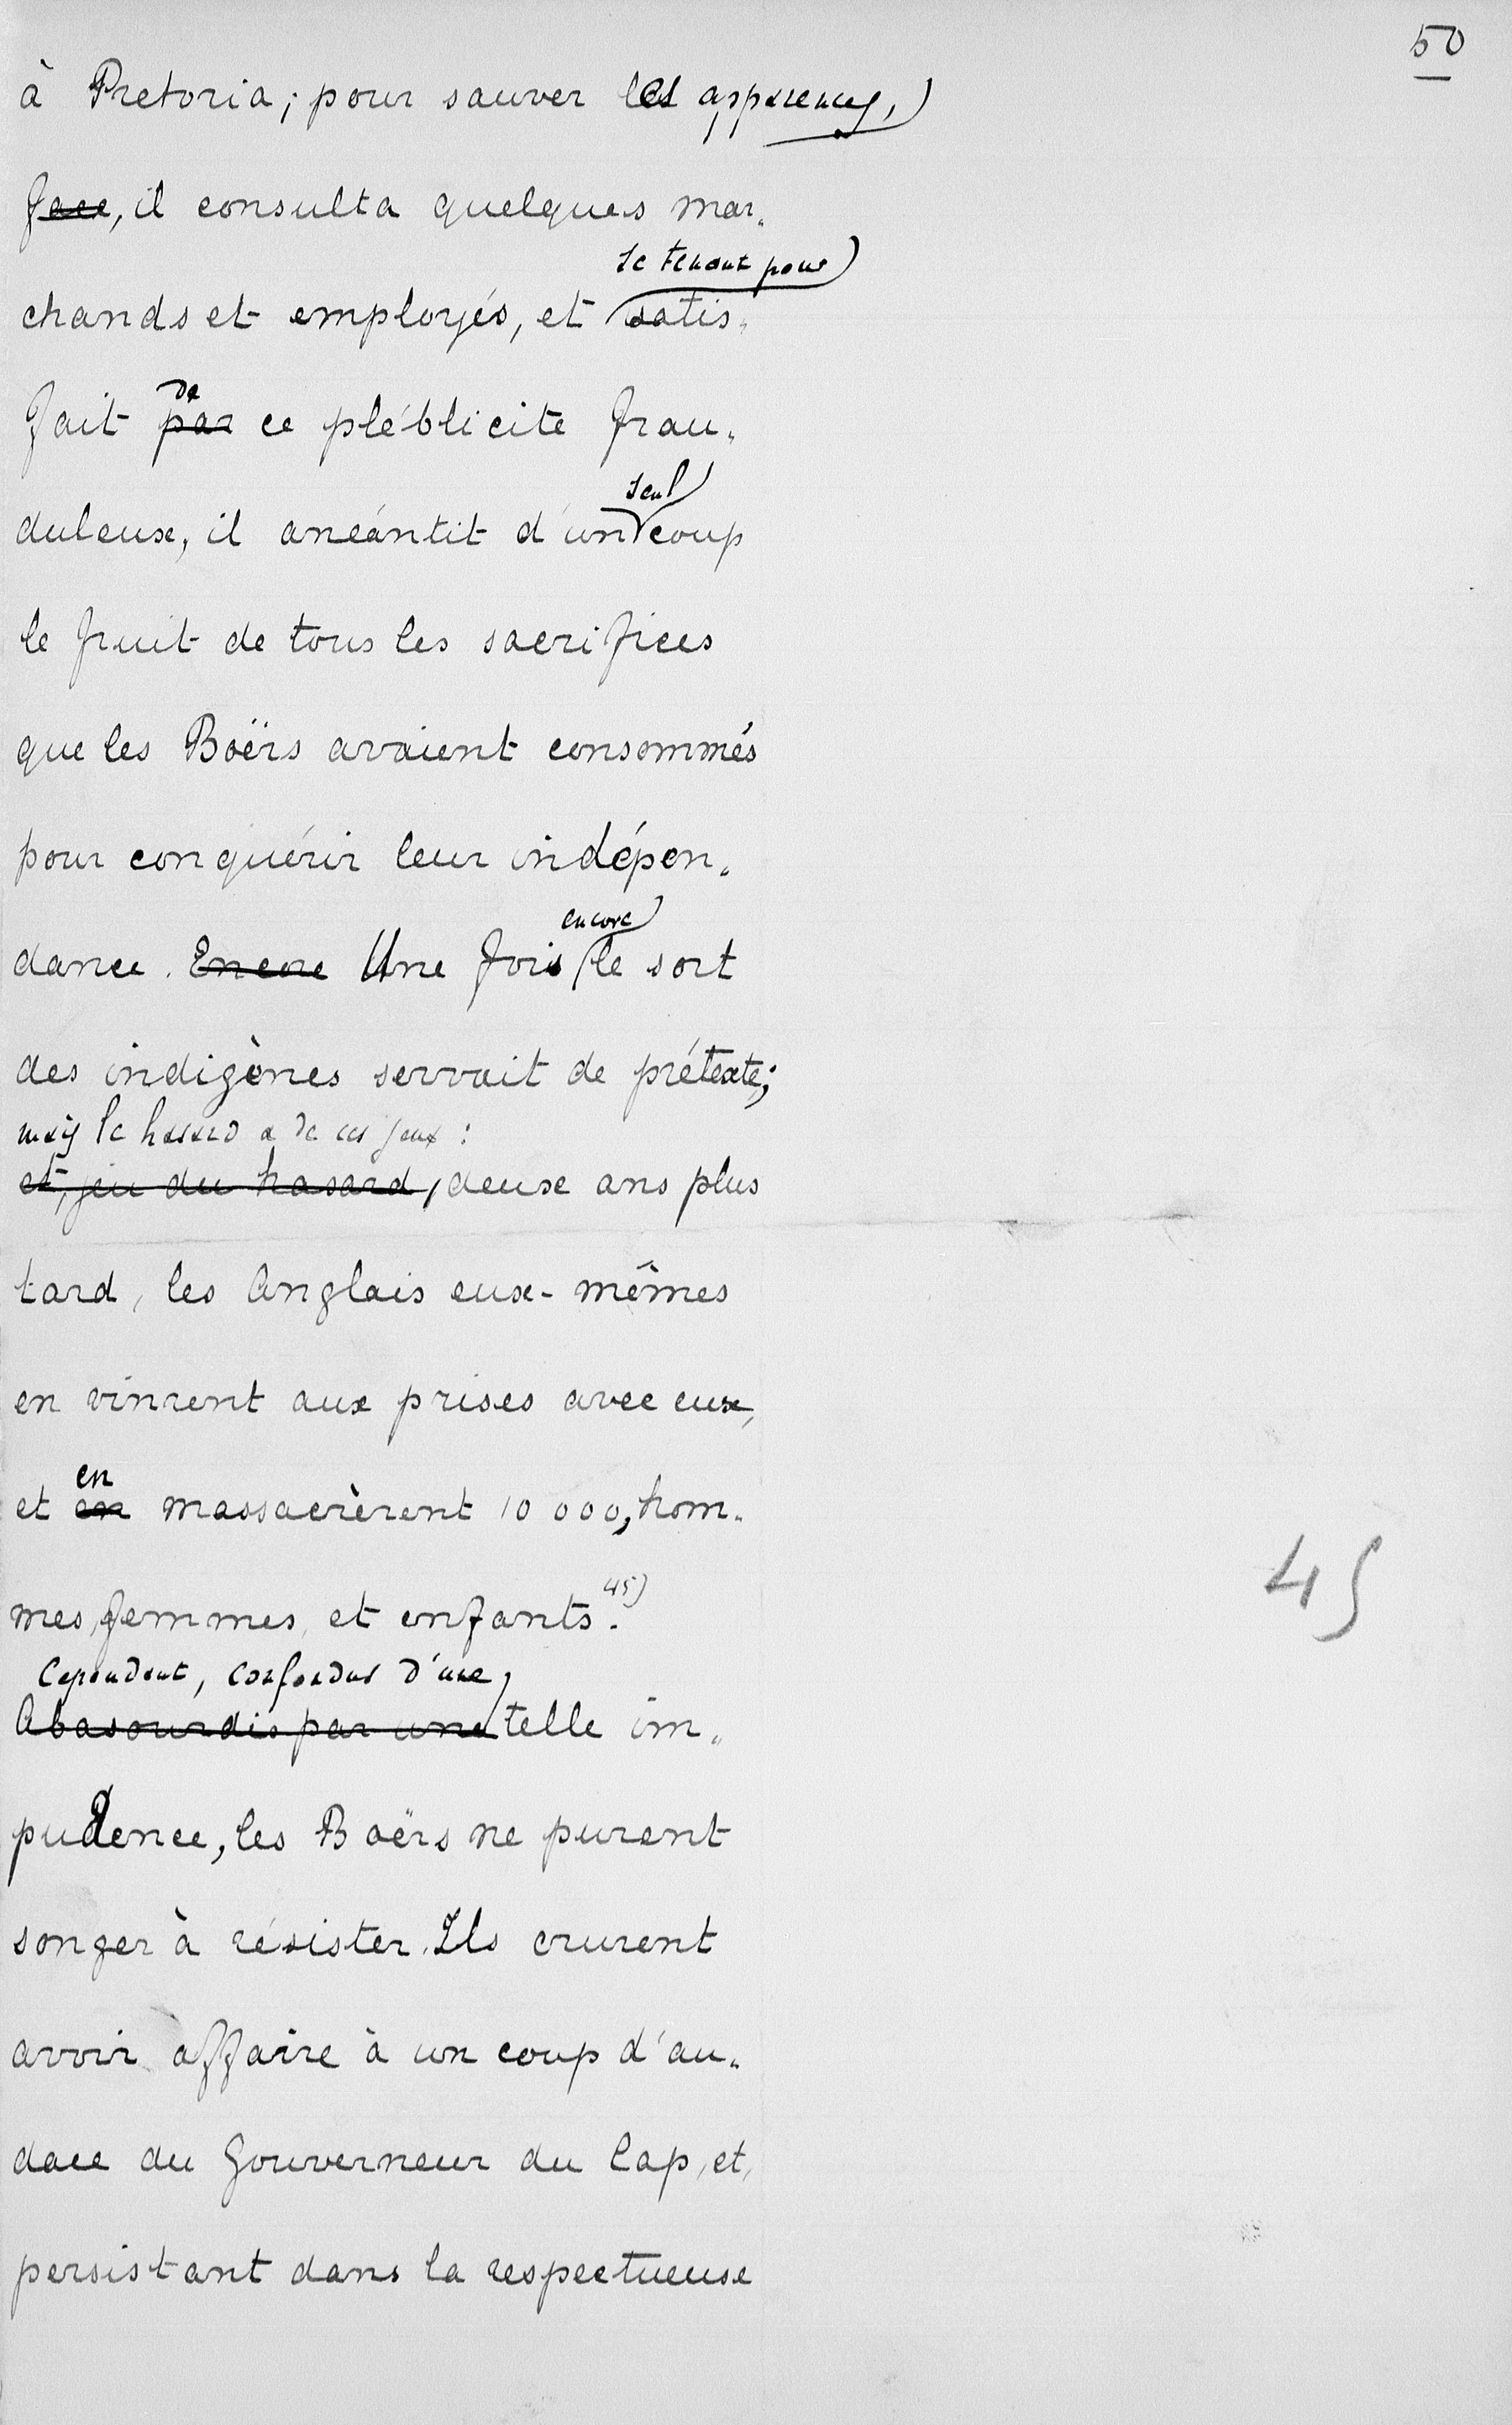 50
à Pretoria; pour sauver les apparences,
face, il consulta quelques mar„
se tenant pour
chands et employés, et satis„
de
fait par ce pléblicite frau„
seul
duleux, il anéantit d'un coup
le fruit de tous les sacrifices
que les Boërs avaient consommés
pour conquérir leur indépen„
encore
dance. Encore Une fois le sort
des indigènes servait de prétexte;
mais le hasard a de ces jeux :
et, jeu du hasard, deux ans plus
tard, les Anglais eux-mêmes
en vinrent aux prises avec eux,
en
et en massacrèrent 10 000, hom„
45
mes, femmes, et enfants. 45)
Cependant, confondus d'une
Abasourdis par une telle im„
pudence, les Boërs ne purent
songer à résister. Ils crurent
avoir affaire à un coup d'au„
dace du Gouverneur du Cap, et,
persistant dans la respectueuse